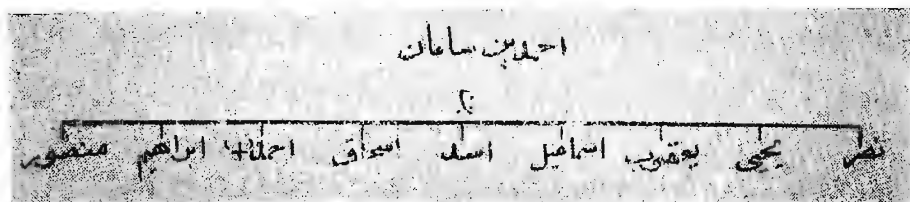 احمد بن سامان
نصر يحيى يعقوب اسماعيل اسد اسحاق احمد ابراهيم منصور